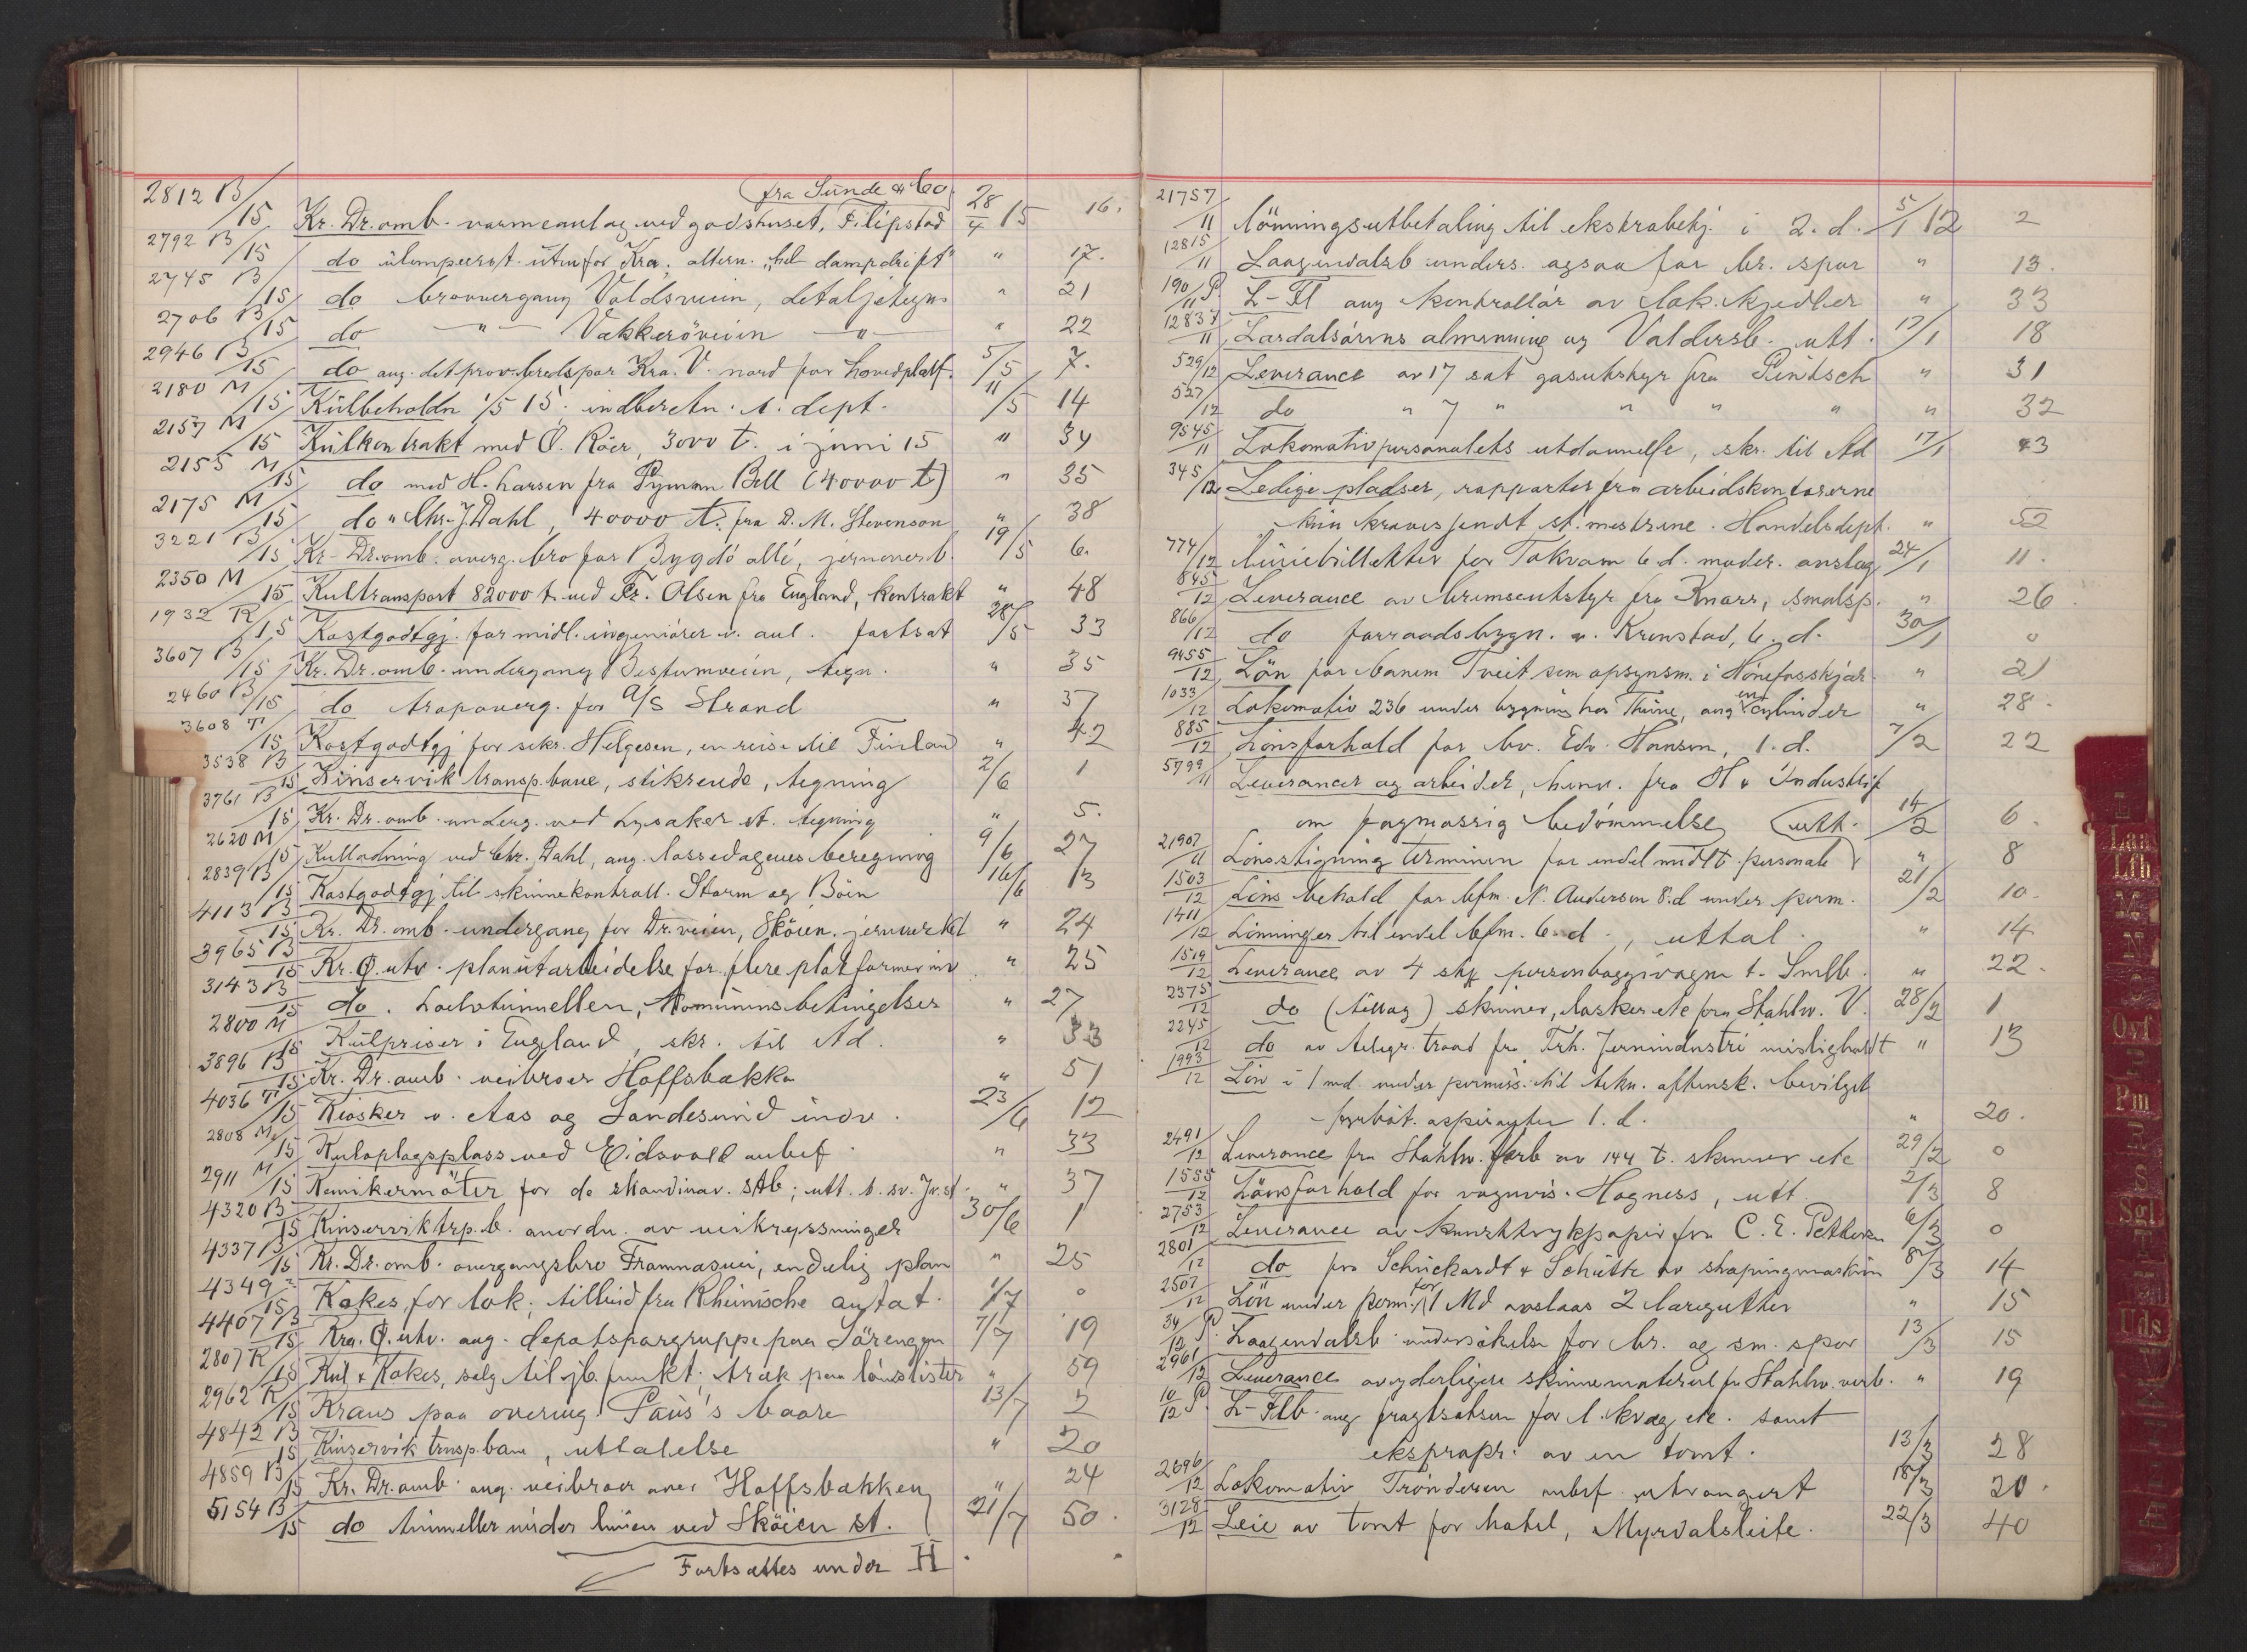 fra Sunde & Co.
2812 B/15 Kr. Dr. omb. varmeanlæg ved godshuset, Filipstad 28/4 15 16.
2792 B/15 do ulemper st. utenfor Kra. altern. „hel dampdrift" " 17.
2745 B/15 do broovergang Voldsveien, detaljetegn. " 21
2706 B/15 do —"— Vækkeröveien —"— " 22
2946 B/15 do ang. det prov. bredspor Kra. V. nord for hovedplatf. 5/5 7.
2180 M/15 Kulbeholdn 1/5 15. indberetn. t. dept. 11/5 14
2157 M/15 Kulkontrakt med O. Röer, 3000 t. i juni 15 " 34
2155 M/15 do med H. Larsen fra Pyman Bell (40000 t) " 35
2175 M/15 do " Chr. J. Dahl, 40000 t. fra D. M. Stevenson " 38
3221 B/15 Kr. Dr. omb. overg. bro for Bygdö allé, jernoverb. 19/5 6.
2350 M/15 Kultransport 82000 t. ved Fr. Olsen fra England, kontrakt " 48
1932 R/15 Kostgodtgj. for midl. ingeniörer v. anl. fortsat 28/5 33
3607 B/15 Kr. Dr. omb. undergang Bestumveien, tegn. " 35
2460 B/15 do trapoverg. for A/S Strand " 37
3608 T/15 Kostgodtgj for sekr. Helgesen, en reise til Finland " 42
3538 B/15 Kinservik transp. bane, stikrende, tegning 2/6 1
3761 B/15 Kr. Dr. omb. underg. ved Lysaker st. tegning " 5.
2620 M/15 Kullodning ved Chr. Dahl, ang. lossedagenes beregning 9/6 27
2839 B/15 Kostgodtgj til skinnekontroll. Storm og Böen 16/6 13
4113 B/15 Kr. Dr. omb. undergang for Dr. veien, Sköien. jernverket " 24
3965 B/15 Kr. Ö. utv. planutarbeidelse for flere platformer mv " 25
3143 B/15 do. Loelvtunnellen, kommunens betingelser " 27
2800 M/15 Kulpriser i England, skr. til Ad. " 33
3896 B/15 Kr. Dr. omb. veibroer Hoffsbakke " 51
4036 T/15 Kiosker v. Aas og Sandesund indv. 23/6 12
2808 M/15 Kuloplagsplass ved Eidsvold anbef. " 33
2911 M/15 Kemikermöter for de skandinav. Stb; utt. t. sv. Jv. st. " 37
4320 B/15 Kinserviktrp. b. anordn. av veikryssninger 30/6 1
4337 B/15 Kr. Dr. omb. overgangsbro Framnæsvei, endelig plan " 25
4349/15 Kokes, for lok. tilbud fra Rheinische anstat. 1/7 0
4407 B/15 Kra. Ö. utv. ang. depotsporgruppe paa Sörengen 7/7 19
2807 R/15 Kul & Kokes, salg til jb. funkt. træk paa lönslister " 59
2962 R/15 Krans paa overing. Paus's baare 13/7 2
4842 B/15 Kinservik trnsp. bane, uttalelse " 20
4859 B/15 Kr. Dr. omb. ang. veibroer over Hoffsbakken " 24
5154 B/15 do tunneller under linien ved Sköien st. 21/7 50.
Fortsættes under H
21757/11 Lönningsutbetaling til ekstrabetj. i 2. d. 5/1 12 2
12815/11 Laagendalsb unders. ogsaa for br. spor " 13.
190 P./11 L-Fl ang kontrollör av lok. kjedler " 33
12837/11 Lærdalsörens almenning og Valdersb. utt. 17/1 18
529/12 Leverance av 17 sæt gasutstyr fra Pintsch " 31
527/12 do " 7 " " " " " 32
9545/11 Lokomotivpersonalets utdannelse, skr. til Ad 17/1 43
345/12 Ledige pladser, rapporter fra arbeidskontorerne
kun kræves sendt st. mestrene. Handelsdept. " 52
774/12 Liniebilletter for Takvam 6 d. moder. avslag 24/1 11.
845/12 Leverance av bremseutstyr fra Knorr, smalsp. " 26.
866/12 do forraadsbygn. v. Krenstad, 6. d. 30/1 0
9455/12 Lön for banem Tveit som opsynsm. i Hönefosskjær. " 21
1033/12 Lokomotiv 236 under bygning hos Thune, ang en cylinder " 28.
885/12 Lönsforhold for bv. Edv. Hansen, 1. d. 7/2 22
5799/11 Leverancer og arbeider, henv. fra H & Industrif
om fagmæssig bedömmelse utt. 14/2 6.
21907/11 Lönsstigning terminen for endel midlt. personale " 8
1503/12 Löns behold for bfm. N. Andersen 8. d under perm. 21/2 10.
1411/12 Lönninger til endel bfm. 6. d., uttal. " 14
1519/12 Leverance av 4 stk personboggivogne t. Smlb. " 22.
2375/12 do (tillæg) skinner, lasker etc fra Stahlw. V. 28/2 1
2245/12 do av telegr. traad fra Trh. Jernindustri misligholdt " 13
1993/12 Lön i 1 md. under permiss. til tekn. aftensk. bevilget
fyrböt. aspiranter 1. d. " 20.
2491/12 Leverance fra Stahlw. Verb av 144 t. skinner etc 29/2 0
1555/12 Lönsforhold for vognvis. Hogness, utt. 2/3 8
2753/12 Leverance av kunsttrykpapir fra C. E. Pettersen 6/3 0
2801/12 do fra Schuckardt & Schütte av shapingmaskin 8/3 14
2507/12 Lön under perm. for 1 Md avslaas 2 læregutter " 15
34 P./12 Laagendalsb. undersökelse for br. og sm. spor 13/3 15
2961/12 Leverance av yderligere skinnemateriel fr Stahlw. verb. " 19
10 P./12 L-Flb. ang fragtsatsen for l. kvæg etc. samt
ekspropr. av en tomt. 13/3 28
2696/12 Lokomotiv Trönderen anbef. utrangert 18/3 20.
3128/12 Leie av tomt for hotel, Myrdalsleite. 22/3 40
Laa
Lfh
M
N
O
Ovf
P
Pm
R
S
Sgl
T
U
Uds